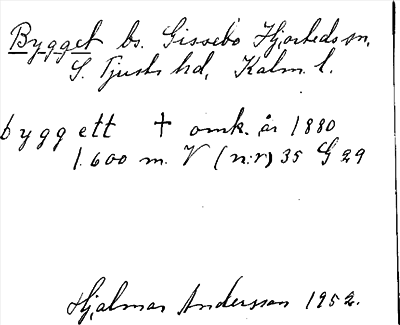 Bygget bs. Gissebo Hjorteds sn,
S. Tjusts hd, Kalm. l.
byggett † omk. år 1880
1.600 m. V (n:r) 35 G 29
Hjalmar Andersson 1952.